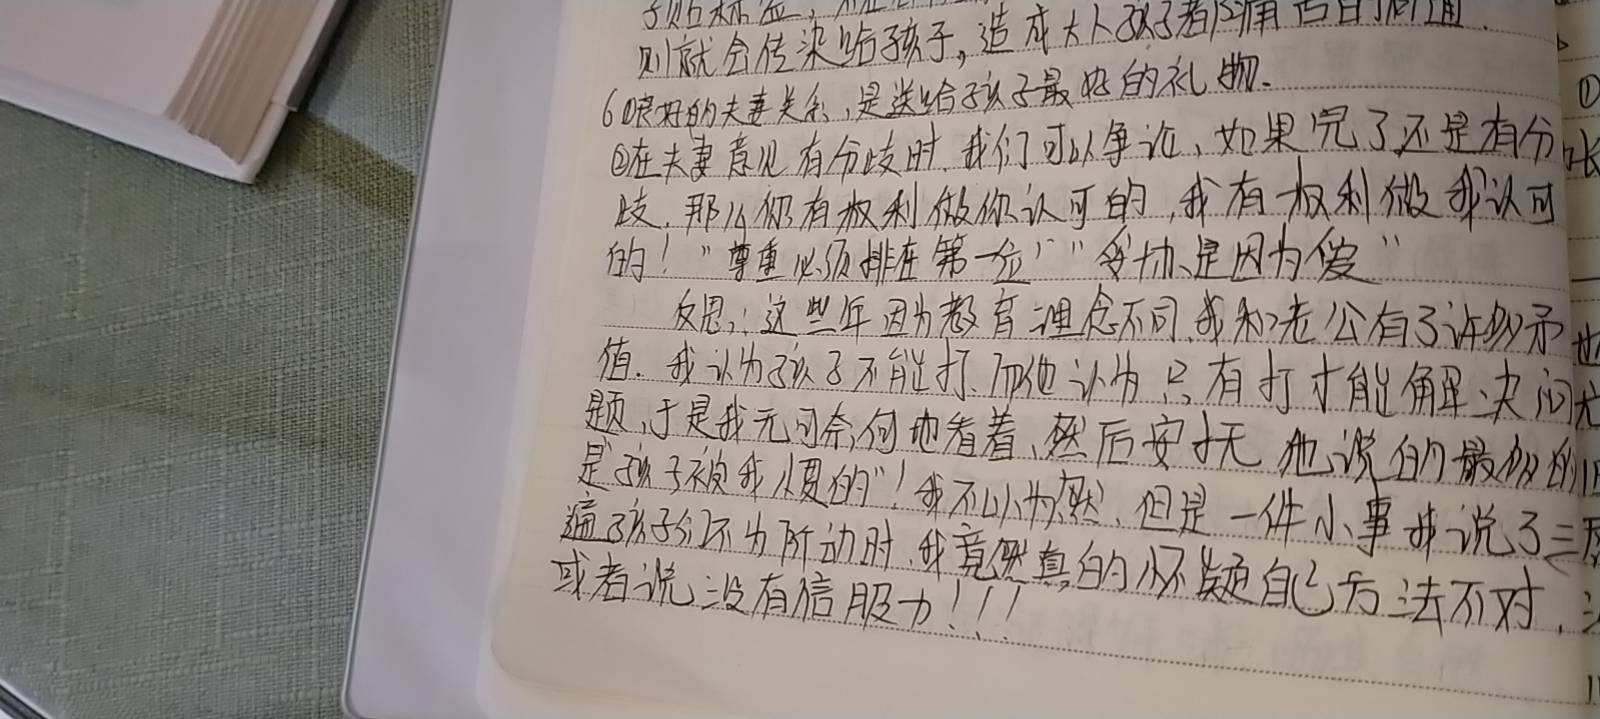 则就会传染给孩子，造成大人孩子着
6①良好的夫妻关系，是送给孩子最好的礼物．
②在夫妻意见有分歧时，我们可以争论、如果完了还是有分
歧，那么你有权利做你认可的，我有权利做我认可
的！"尊重必须排在第一位""妥协、是因为爱"
反思：这些年因为教育理念不同，我和老公有了许多矛
值．我认为孩子不能打．而他认为只有打才能解决问
题，于是我无可奈何地看着、然后安抚 他说的最多的
是"孩子被我惯的"！我不以为然、但是一件小事我说了三
遍孩子们不为所动时，我竟然真的怀疑自己方法不对，
或者说没有信服力！！！